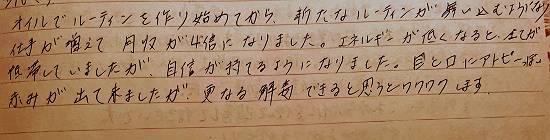 オイルでルーティンを作り始めてから、新たなルーティンが舞い込むような
仕事が増えて月収が4倍になりました。エネルギーが低くなると、全てが
停滞していましたが、自信が持てるようになりました。目と口にアトピーっぽい
赤みが出て来ましたが、更なる解毒できると思うとワクワクします。